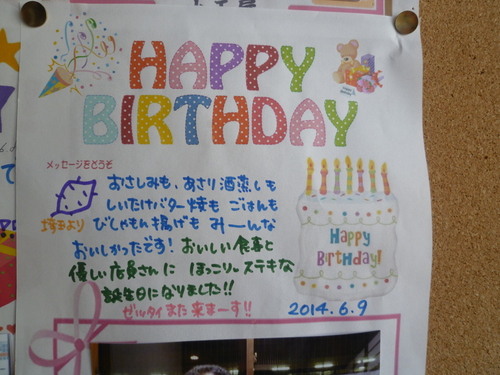 HAPPY
BIRTHDAY
メッセージをどうぞ
おさしみも、あさり酒蒸しも
しいたけバター焼も ごはんも
埼玉より
びしゃもん揚げも みーんな
おいしかったです! おいしい食事と
優しい店員さんに ほっこり〜ステキな
誕生日になりました!!
ゼッタイ また 来まーす!!
Happy
Birthday!
2014.6.9